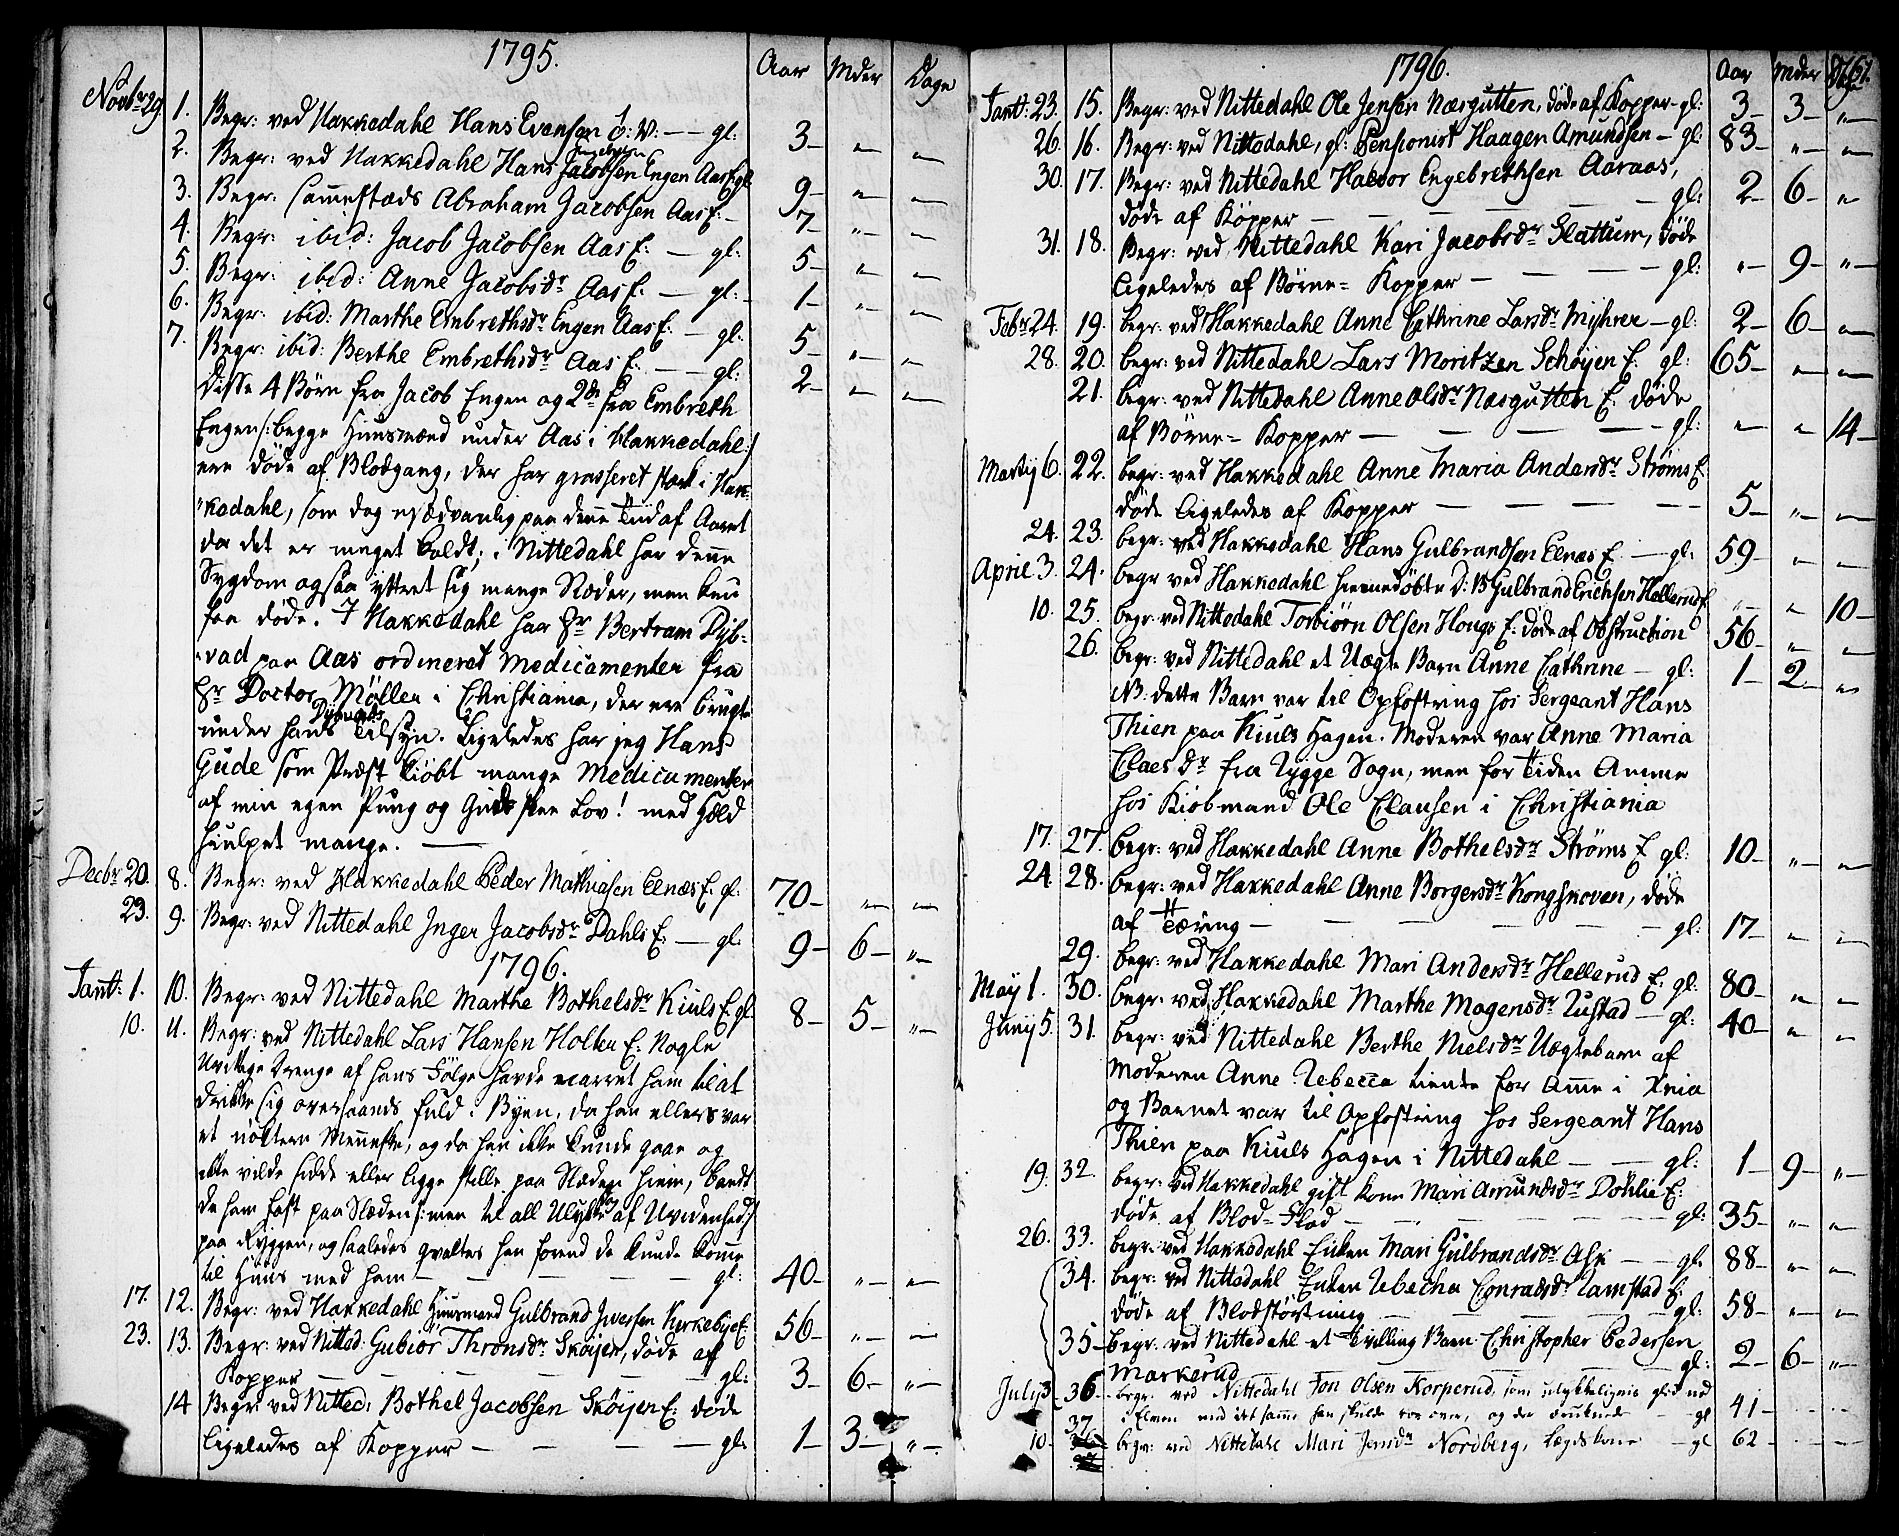 1795. Aar Mder Dage
Novbr 29. 1. Begr: ved Hakkedahl Hans Evensen — gl: 3 — " — " —
2. Begr: ved Hakkedahl Hans Jacobsen Engen Aas E. gl: 9 — " — " —
3. Begr: sammestæds Abraham Jacobsen Aas E. — 7 — " — " —
4. Begr: ibid: Jacob Jacobsen Aas E. — gl: 5 — " — " —
5. Begr: ibid: Anne Jacobsdr Aas E. — gl: 1 — " — " —
6. Begr: ibid: Marthe Embrethsdr Engen Aas E. — gl: 5 — " — " —
7. Begr: ibid: Berthe Embrethsdr Aas E. — gl: 2 — " — " —
Disse 4 Børn fra Jacob Engen og 2de fra Embreth
Engen /: begge Huusmænd under Aas i Hakkedahl :/
ere døde af Blodgang, der har grasseret stærk i Hak-
"kedahl, som dog usædvanlig paa denne Tiid af Aaret
da det er meget koldt; i Nittedahl har denne
Sygdom ogsaa yttret sig mange Stæder, men kun
faa døde. I Hakkedahl har Hr Bertram Dyb-
"vad paa Aas ordineret Medicamenter fra
Hr Doctor Møller i Christiania, der ere brugte
under hans Dybvads Tilsyn. Ligeledes har jeg Hans
Gude som Præst kiøbt mange Medicamenter
af min egen Pung og Gud skee Lov! med Held
hiulpet mange. —
Decbr 20. 8. Begr: ved Hakkedahl Peder Mathiasen Elnæs E. gl: 70 — " — " —
23. 9. Begr: ved Nittedahl Inger Jacobsdr Dahls E. — gl: 9 — 6 — " —
1796.
Jant: 1. 10. Begr: ved Nittedahl Marthe Bothelsdr Kiuls E. gl: 8 — 5 — " —
10. 11. Begr: ved Nittedahl Lars Hansen Holter E. Nogle
Uvittige Drenge af hans Følge havde narret ham til at
drikke sig overhaands fuld i Byen, da han ellers var
et nøktern Menneske, og da han ikke kunde gaae og
ikke vilde sidde eller ligge stille paa Slæden hiem, bandt
de ham fast paa Slæden /: men til all Ulykke af Uvidenhed :/
paa Ryggen, og saaledes qvaltes han forend de kunde komme
til Huus med ham — — — gl: 40 — " — " —
17. 12. Begr: ved Hakkedahl Huusmand Gulbrand Iversen Kirkebye E. 56 — " — " —
23. 13. Begr: ved Nitted: Gubiør Thronsdr Skøijen, døde af
Kopper — — — gl: 3 — 6 — " —
14 Begr: ved Nitted: Bothel Jacobsen Skøijen E. døde
ligeledes af Kopper — — — gl: 1 — 3 — " —
1796. Aar Mder Dage
Jant: 23. 15. Begr: ved Nittedahl Ole Jensen Næsgutten, døde af Kopper — gl: 3 — 3 — " —
26. 16. Begr: ved Nittedahl, gl: Pensionist Haagen Amundsen — gl: 83 — " — " —
30. 17. Begr: ved Nittedahl Halvor Engebrethsen Aaraas,
døde af Kopper — — — gl: 2 — 6 — "
31. 18. Begr: ved Nittedahl Kari Jacobsdr Slattum, døde
ligeledes af Børne-Kopper — — — gl: " — 9 — " —
Febr 24. 19. begr: ved Hakkedahl Anne Cathrine Larsdr Myhrer — gl: 2 — 6 — " —
28. 20. begr: ved Nittedahl Lars Moritzen Schøijen E. gl: 65 — " — " —
21. begr: ved Nittedahl Anne Olsdr Næsgutten E. døde
af Børne-Kopper — — — gl: " — " 14 —
Martij 6. 22. begr: ved Hakkedahl Anne Maria Andersdr Strøms E.
døde ligeledes af Kopper — — — 5 — " — " —
24. 23. begr: ved Hakkedahl Hans Gulbrandsen Elnæs E. — gl: 59 — " — " —
April 3. 24. begr ved Hakkedahl hiemmedøbte D: B Gulbrand Erichsen Hellerud E. " — " 10 —
10. 25. begr: ved Nittedahl Torbiørn Olsen Hougs E. døde af Obstruction 56 — " — " —
26. begr: ved Nittedahl et Uægte Barn Anne Cathrine — gl: 1 — 2 — "
NB: dette Barn var til Opfostring hos Sergeant Hans
Thien paa Kiuls Hagen. Moderen var Anne Maria
Claesdr fra Rygge Sogn, men for Tiden Amme
hos Kiøbmand Ole Clausen i Christiania
17. 27. begr: ved Hakkedahl Anne Bothelsdr Strøms E gl: 10 — " — " —
24 28. begr: ved Hakkedahl Anne Borgersdr Kongskoven, døde
af Tæring — — — gl: 17 — " — " —
29. begr: ved Hakkedahl Mari Andersdr Hellerud E. gl: 80 — " — " —
May 1. 30. begr: ved Hakkedahl Marthe Mogensdr Rustad — gl: 40 — " — " —
Junij 5. 31. begr: ved Nittedahl Berthe Nielsdr Uægtebarn af
Moderen Anne Rebecca tiente for Amme i Xnia
og Barnet var til Opfostring hos Sergeant Hans
Thien paa Kiuls Hagen i Nittedahl — — gl: 1 — 9 — " —
19. 32. begr: ved Hakkedahl gift Kone Mari Amundsdr Døhlie E.
døde af Blod-Flod — — — gl: 35 — " — " —
26. 33. begr: ved Hakkedahl Enken Mari Gulbrandsdr Ask — gl. 88 — " — " —
34. begr: ved Nittedahl Enken Rebecha Conradsdr Ramstad E.
døde af Blodstørtning — — gl: 58 — " — " —
35 — begr: ved Nittedahl et Tvilling Barn Christopher Pedersen
Markerud — — — gl: 2 — 6 — " —
July 3 — 36 — begr. ved Nittedahl Jon Olsen Korperud, som ulykkeligviis gled ned
i Elven ved det samme han skulde roe over, og der druknede — gl 41 — — —
10 — 37 begr: ved Nittedahl Mari Jensdr Nordberg, Lægdskone — gl 62 — — —